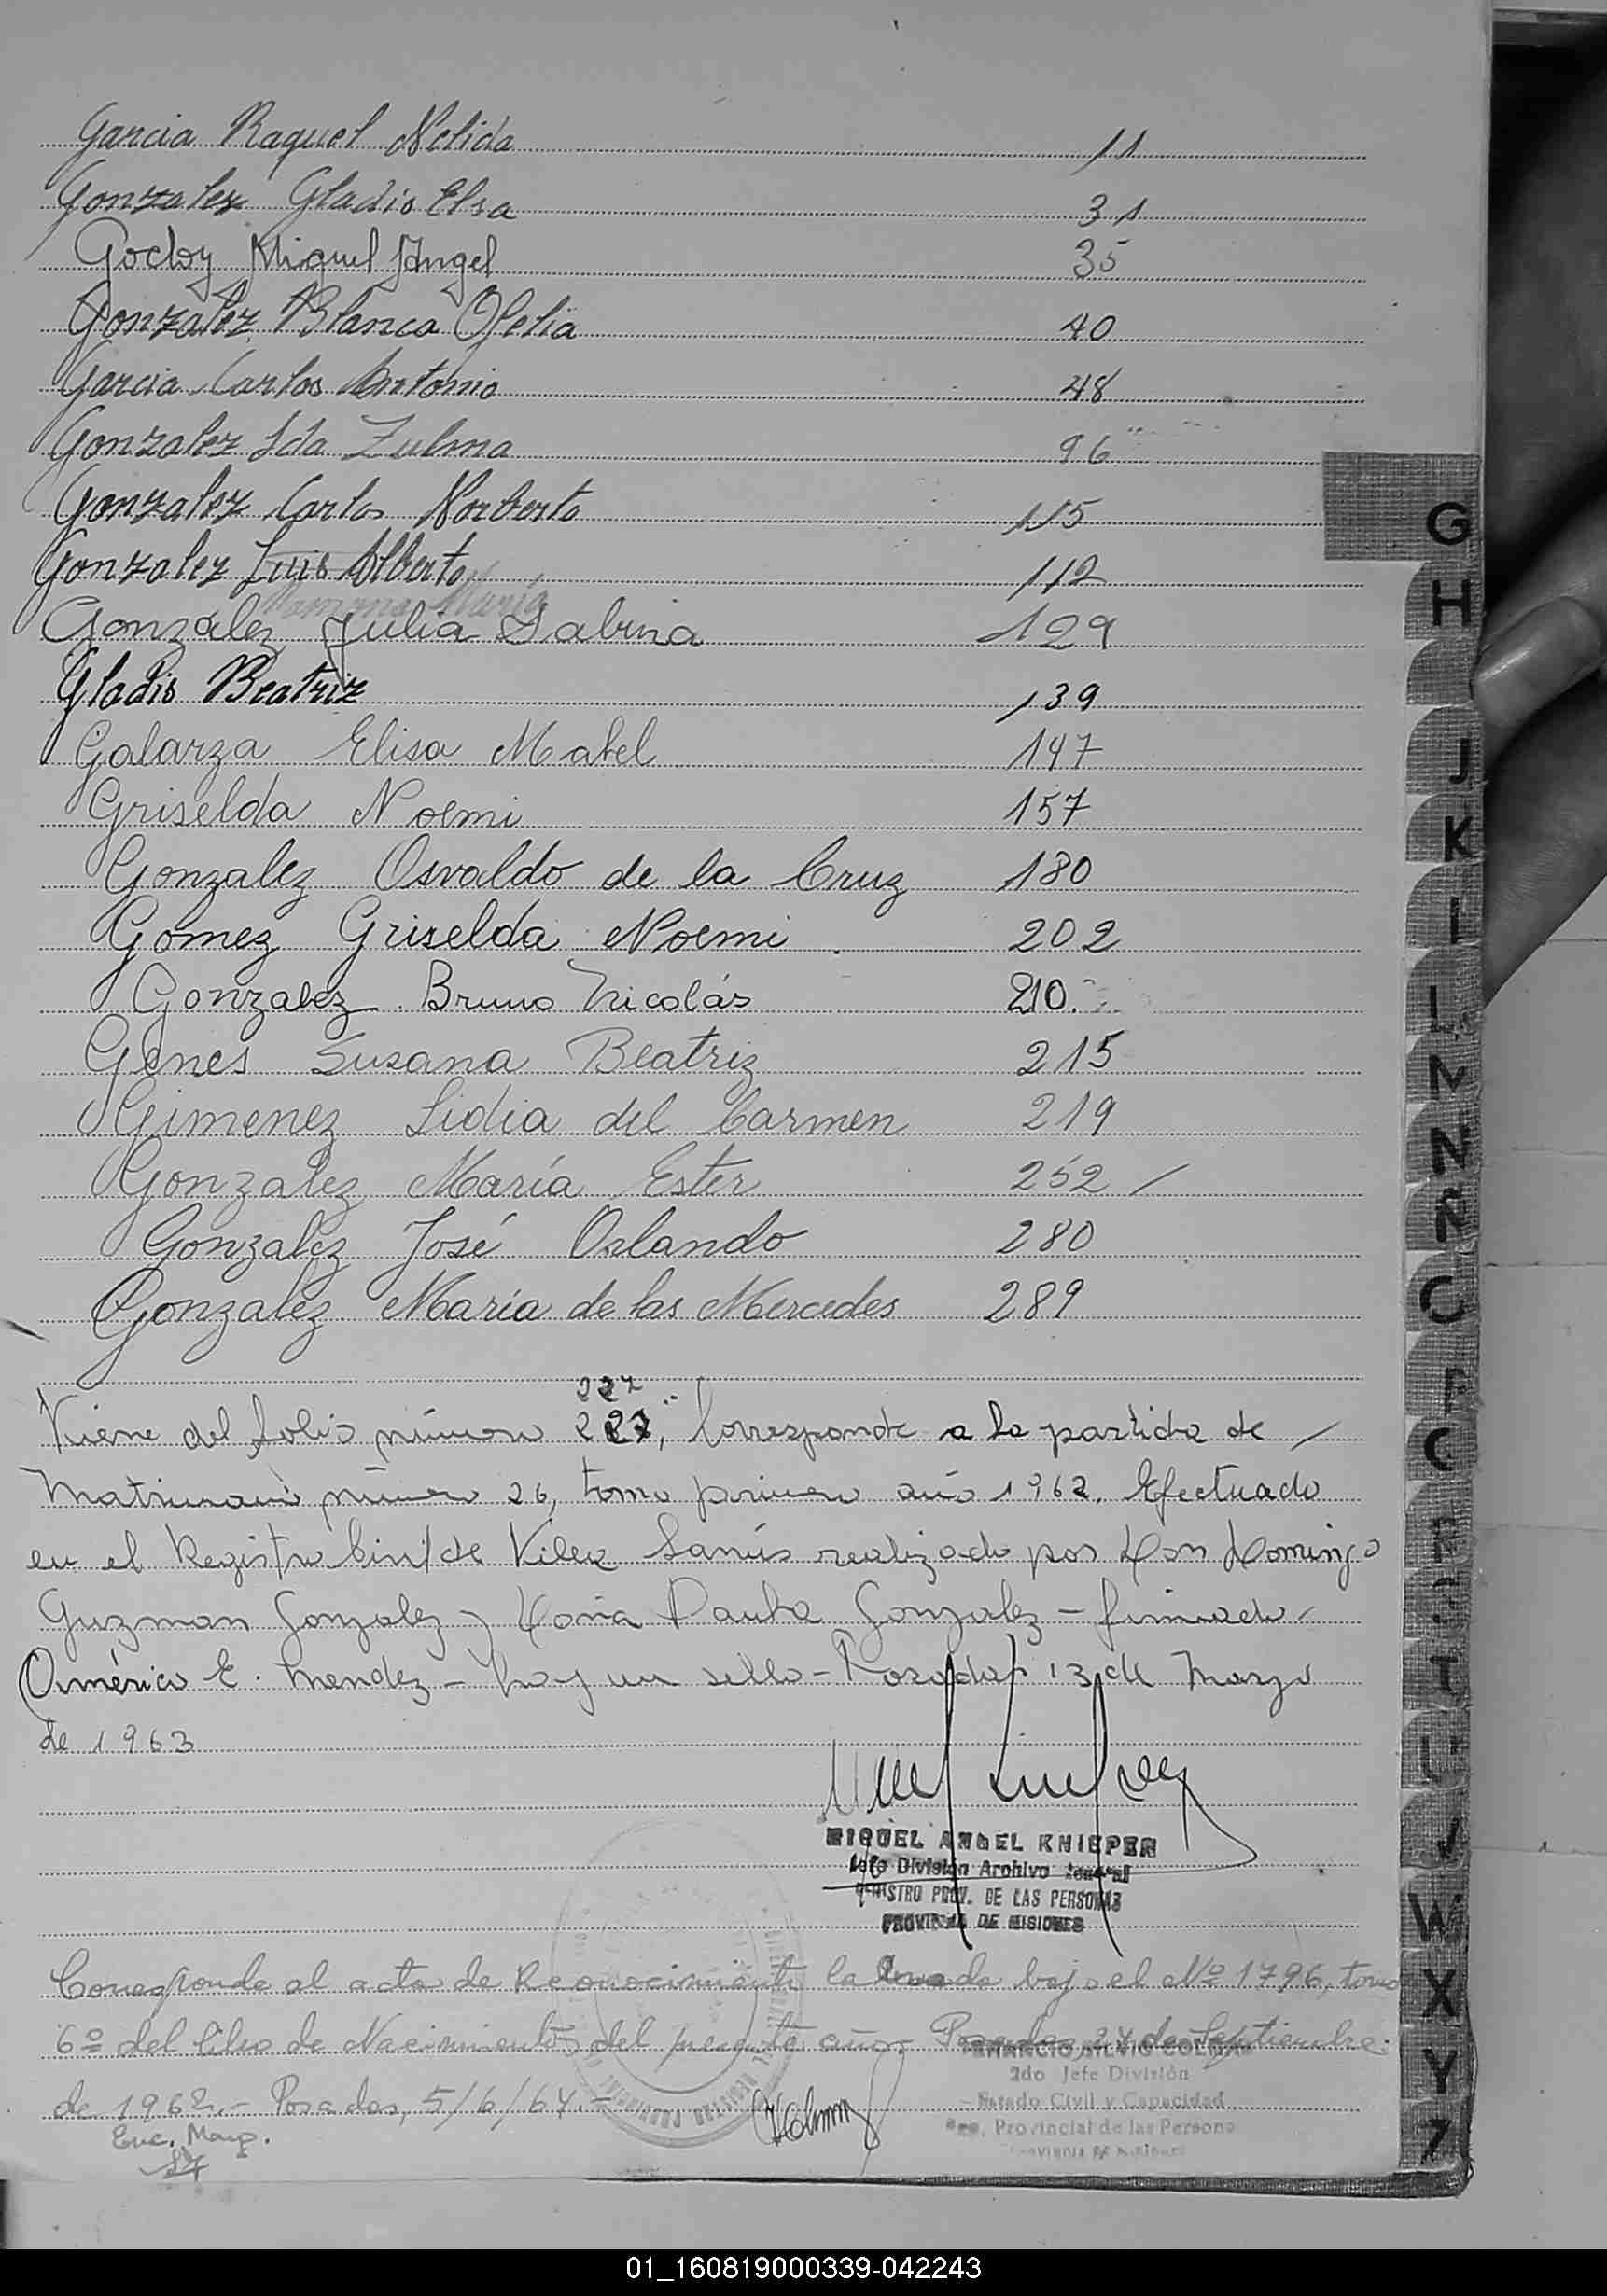 Garcia Raquel Nelida 11
Gonzalez Gladis Elsa 31
Godoy Miguel Angel 35
Gonzalez Blanca Ofelia 40
Garcia Carlos Antonio 48
Gonzalez Ida Zulma 96
Gonzalez Carlos Norberto 115
Gonzalez Luis Alberto 112
Ramona María
González Julia Sabina 129
Gladis Beatriz 139
Galarza Elisa Mabel 147
Griselda Noemi 157
Gonzalez Osvaldo de la Cruz 180
Gomez Griselda Noemi 202
Gonzalez Bruno Nicolás 210
Genes Susana Beatriz 215
Gimenez Lidia del Carmen 219
Gonzalez María Ester 252 /
Gonzalez José Orlando 280
Gonzalez María de las Mercedes 289
227
Viene del folio número 227, Corresponde a la partida de /
Matrimonio número 26, tomo primero año 1962. Efectuado
en el Registro Civil de Villa Lanús realizado por Don Domingo
Guzman Gonzalez y Doña Paula Gonzalez - firmado /
Américo E. Mendez - hay un sello - Posadas 13 de Marzo
de 1963
MIGUEL ANGEL KNIEPER
Jefe División Archivo General
REGISTRO PROV. DE LAS PERSONAS
PROVINCIA DE MISIONES
Corresponde al acta de Reconocimiento labrada bajo el Nº 1796, tomo
6º del libro de Nacimientos del presente año.- Posadas, 24 de Septiembre
de 1962.- Posadas, 5/6/64.-
2do Jefe División
Estado Civil y Capacidad
Reg. Provincial de las Persona
Enc. Marg.
G
H
J
K
L
N
N
C
T
W
X
Y
Z
01_160819000339-042243